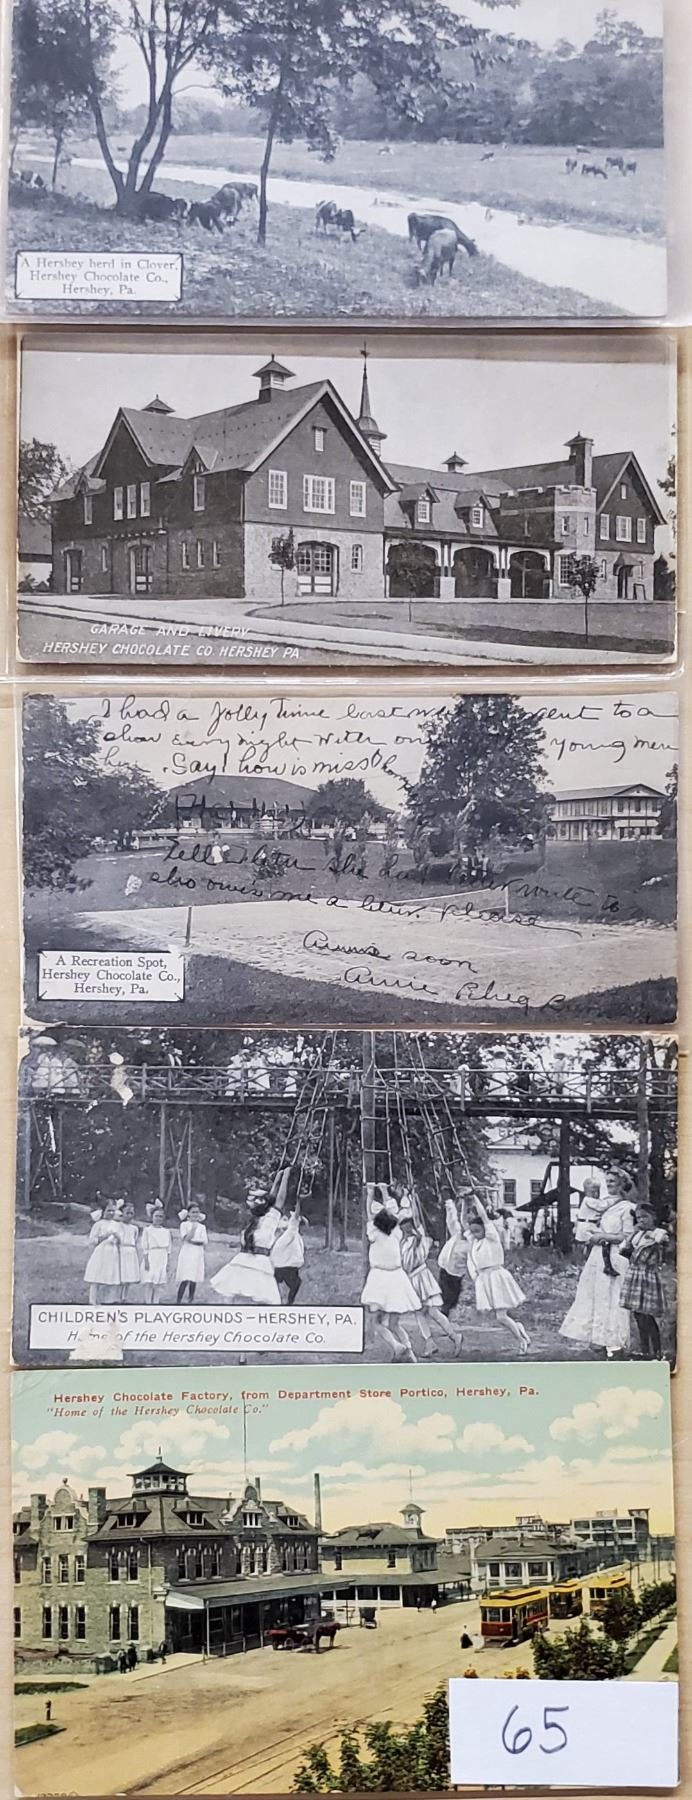 A Hershey herd in Clover,
Hershey Chocolate Co.,
Hershey, Pa.
GARAGE AND LIVERY
HERSHEY CHOCOLATE CO. HERSHEY PA
I had a Jolly time last went to a
show every night with on young men
Say! how is miss
Tell she write to
also owes me a letter. please
soon
Annie
A Recreation Spot,
Hershey Chocolate Co.,
Hershey, Pa.
CHILDREN'S PLAYGROUNDS-HERSHEY, PA.
Home of the Hershey Chocolate Co.
Hershey Chocolate Factory, from Department Store Portico, Hershey, Pa.
"Home of the Hershey Chocolate Co."
65